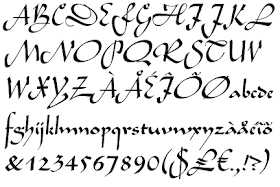 ABCDEFGHIJKL
MNOPQRSTUVW
XYZÀÅÉÎÕØabcde
fghijklmnopqrstuvwxyzàåéîõ
&1234567890($£€.,!?)